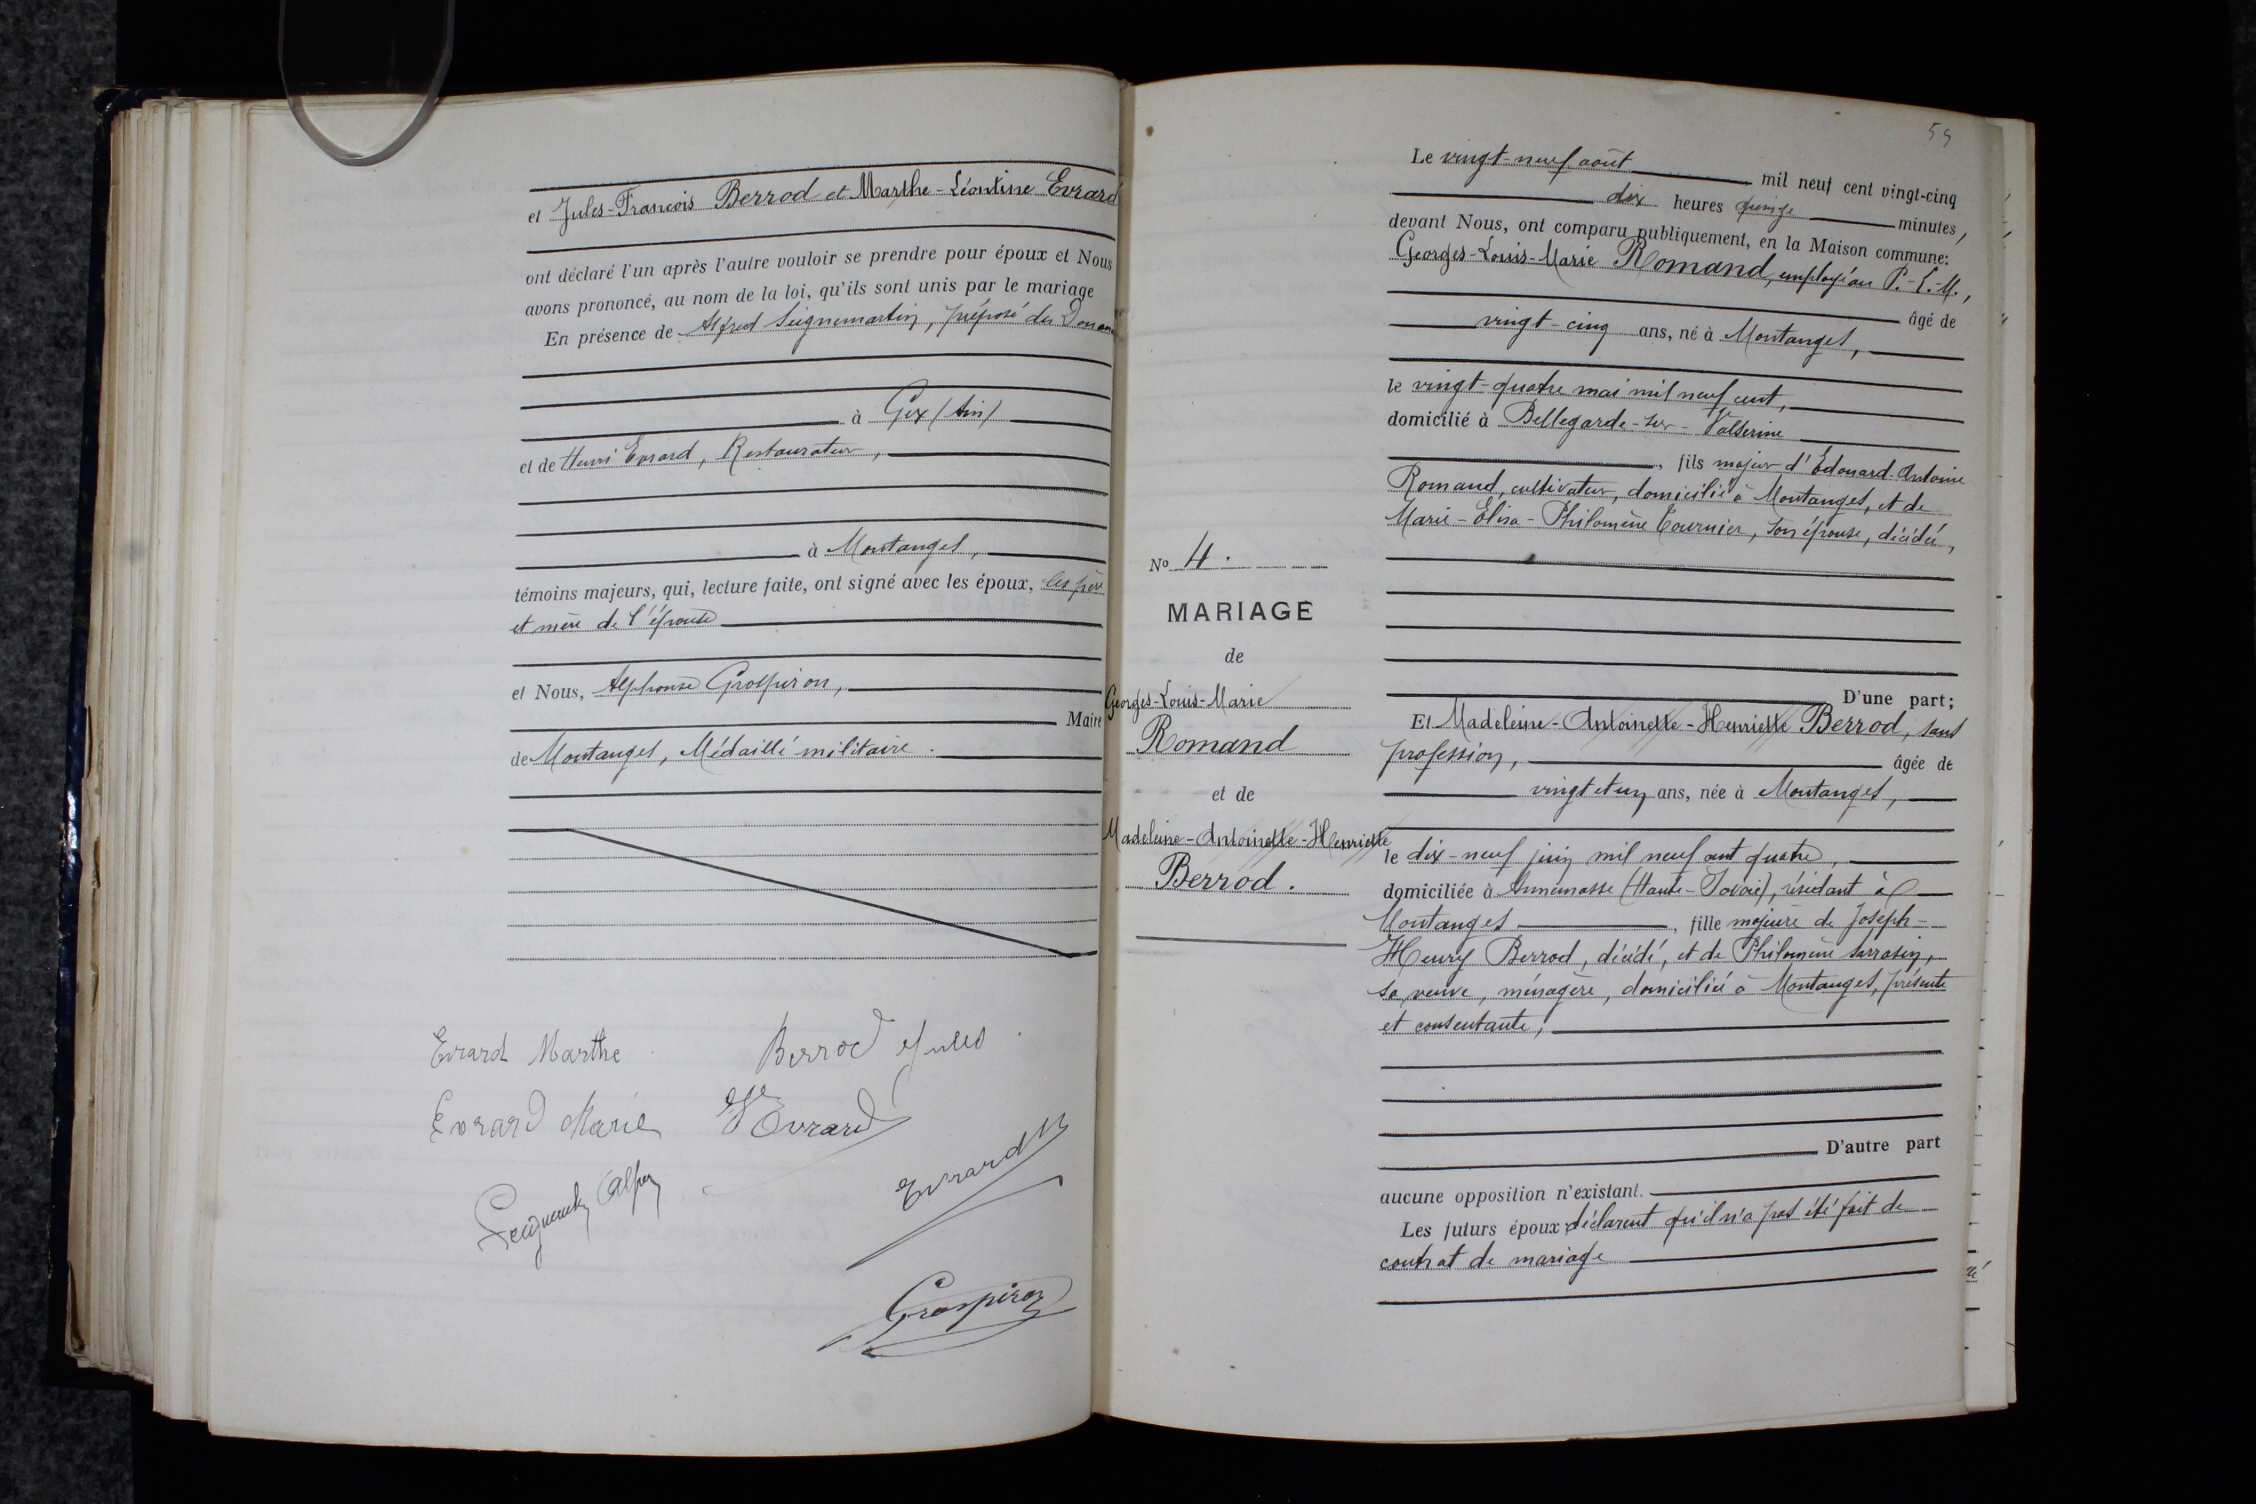 et Jules-François Berrod et Marthe-Léontine Evrard
ont déclaré l'un après l'autre vouloir se prendre pour époux et Nous
avons prononcé, au nom de la loi, qu'ils sont unis par le mariage
En présence de Alfred Seignemartin, préposé des Douanes
à Gex (Ain)
et de Henri Evrard, Restaurateur,
à Montanges,
témoins majeurs, qui, lecture faite, ont signé avec les époux, les père
et mère de l'épouse
et Nous, Alphonse Grospiron,
Maire
de Montanges, Médaillé militaire.
Evrard Marthe Berrod Jules
Evrard Marie Evrard
Evrard
Grospiron
59
No 4.
MARIAGE
de
Georges-Louis-Marie
Romand
et de
Madeleine-Antoinette-Henriette
Berrod.
Le vingt-neuf août mil neuf cent vingt-cinq
dix heures quinze minutes,
devant Nous, ont comparu publiquement, en la Maison commune:
Georges-Louis-Marie Romand, employé au P.-L.-M.,
âgé de
vingt-cinq ans, né à Montanges,
le vingt-quatre mai mil neuf cent,
domicilié à Bellegarde-sur-Valserine
, fils majeur d'Edouard-Antoine
Romand, cultivateur, domicilié à Montanges, et de
Marie-Elisa-Philomène Tournier, son épouse, décédée,
D'une part;
Et Madeleine-Antoinette-Henriette Berrod, sans
profession, âgée de
vingt et un ans, née à Montanges,
le dix-neuf juin mil neuf cent quatre,
domiciliée à Annemasse (Haute-Savoie), résidant à
Montanges, fille majeure de Joseph-
Henry Berrod, décédé, et de Philomène Sarrasin,
sa veuve, ménagère, domiciliée à Montanges, présente
et consentante,
D'autre part
aucune opposition n'existant.
Les futurs époux déclarent qu'il n'a pas été fait de
contrat de mariage